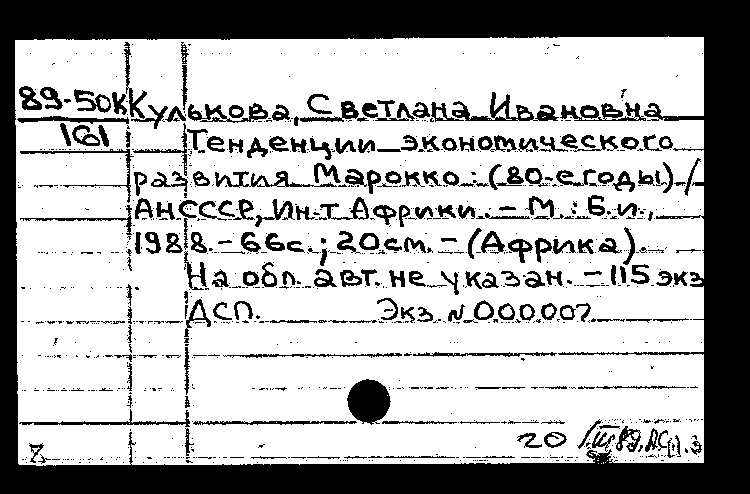 89-50К Кулькова, Светлана Ивановна
161 Тенденции экономического
развития Марокко: (80-е годы) /
АН СССР, Ин-т Африки. – М.: Б.и.,
1988. – 66с.; 20см. – (Африка).
На обл. авт. не указан. – 115 экз
ДСП. Экз N 000007
20